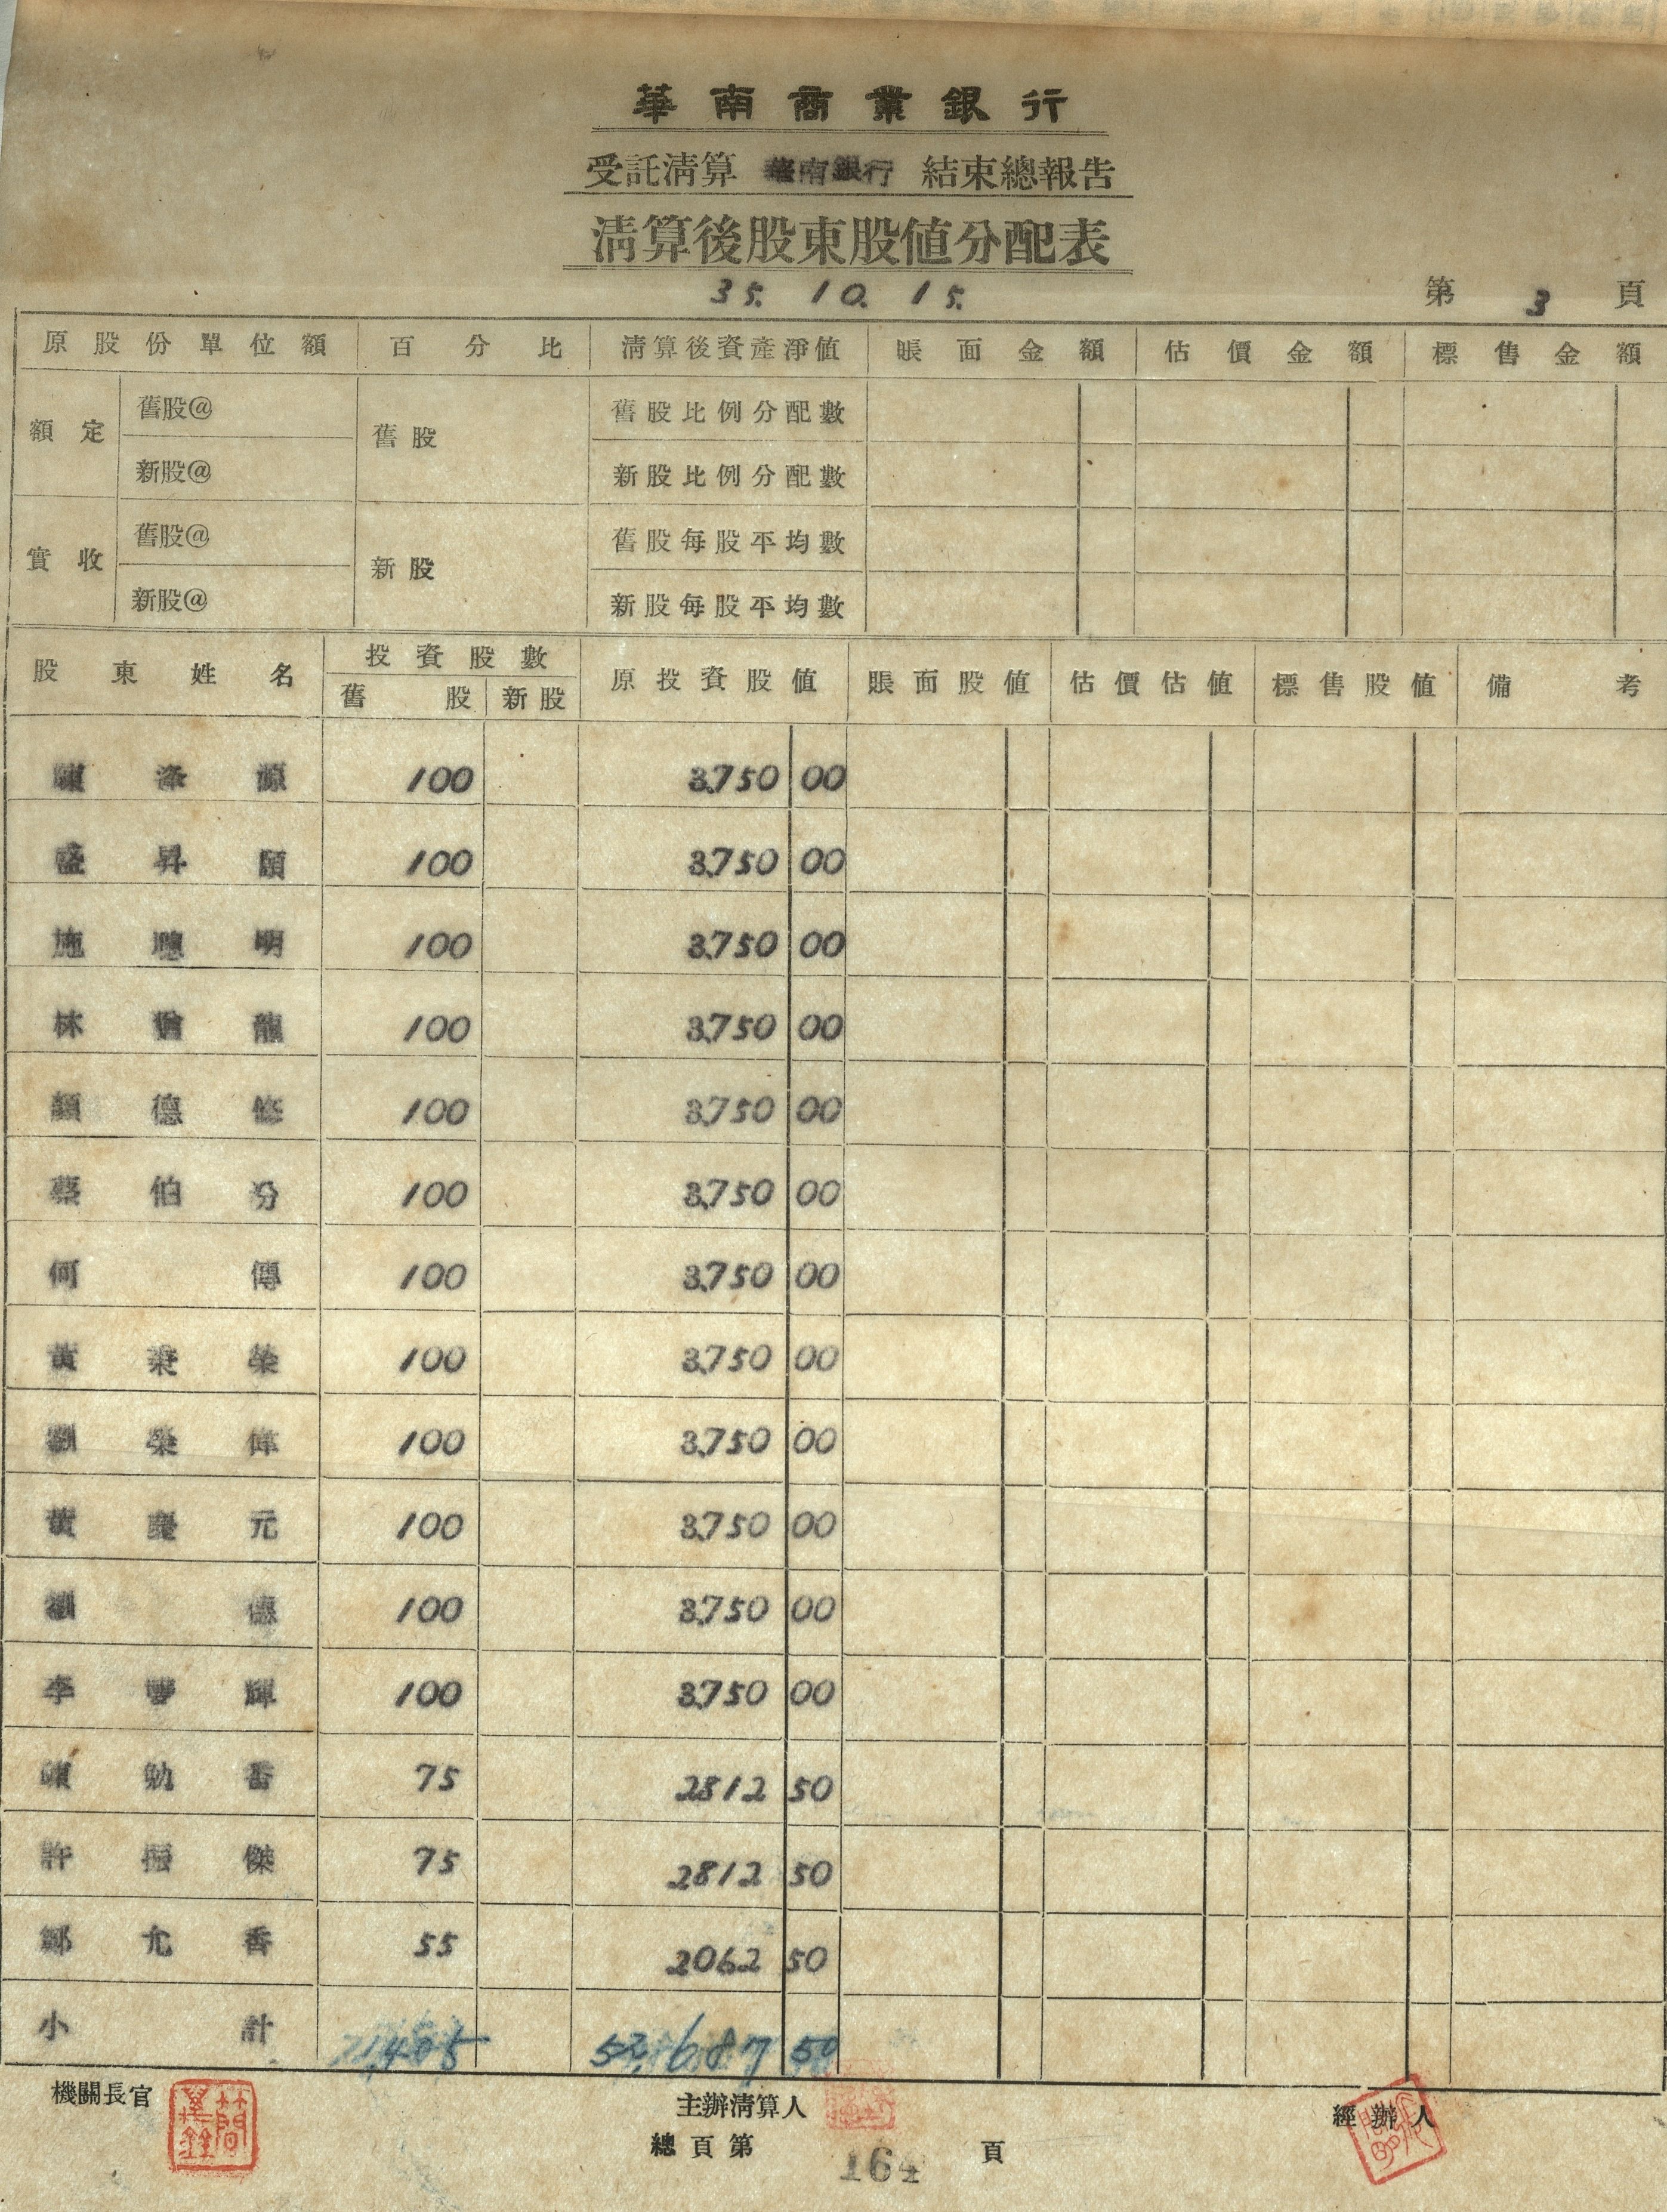 華南商業銀行
受託清算 華南銀行 結束總報告
清算後股東股値分配表
35. 10. 15.
第 3 頁
原股份單位額 百分比 清算後資產淨値 賬面金額 估價金額 標售金額
額定 舊股@ 舊股 舊股比例分配數
新股@ 新股比例分配數
實收 舊股@ 新股 舊股每股平均數
新股@ 新股每股平均數
股東姓名 投資股數 原投資股値 賬面股値 估價估値 標售股値 備考
舊股 新股
源 100 3,750 00
盛昇頤 100 3,750 00
施聰明 100 3,750 00
林 龍 100 3,750 00
顏德修 100 3,750 00
蔡伯汾 100 3,750 00
何傳 100 3,750 00
黃 榮 100 3,750 00
劉榮 100 3,750 00
黃慶元 100 3,750 00
劉 100 3,750 00
李 輝 100 3,750 00
勉番 75 2812 50
許振傑 75 2812 50
鄭尤香 55 2062 50
小計 1,405 52,687 50
機關長官 主辦清算人 經辦人
總頁第 164 頁